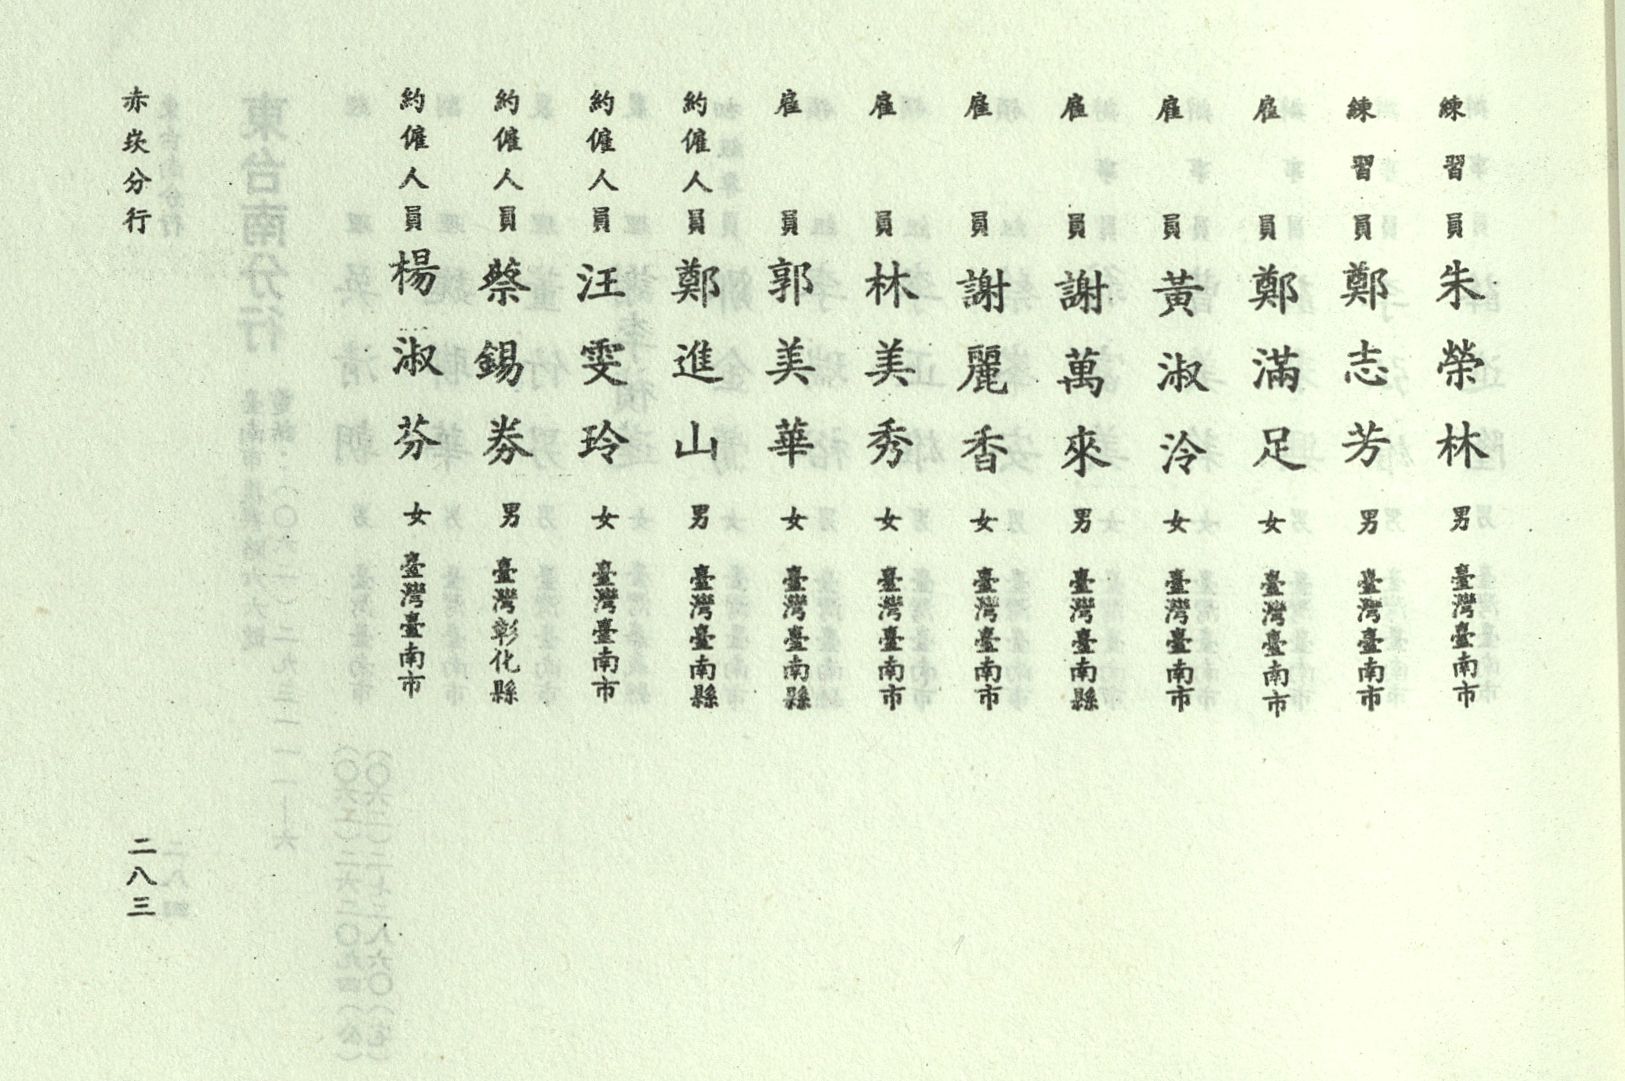 練習員 朱榮林 男 臺灣臺南市
練習員 鄭志芳 男 臺灣臺南市
雇員 鄭滿足 女 臺灣臺南市
雇員 黃淑泠 女 臺灣臺南市
雇員 謝萬來 男 臺灣臺南縣
雇員 謝麗香 女 臺灣臺南市
雇員 林美秀 女 臺灣臺南市
雇員 郭美華 女 臺灣臺南縣
約僱人員 鄭進山 男 臺灣臺南縣
約僱人員 汪雯玲 女 臺灣臺南市
約僱人員 蔡錫劵 男 臺灣彰化縣
約僱人員 楊淑芬 女 臺灣臺南市
赤崁分行
二八三